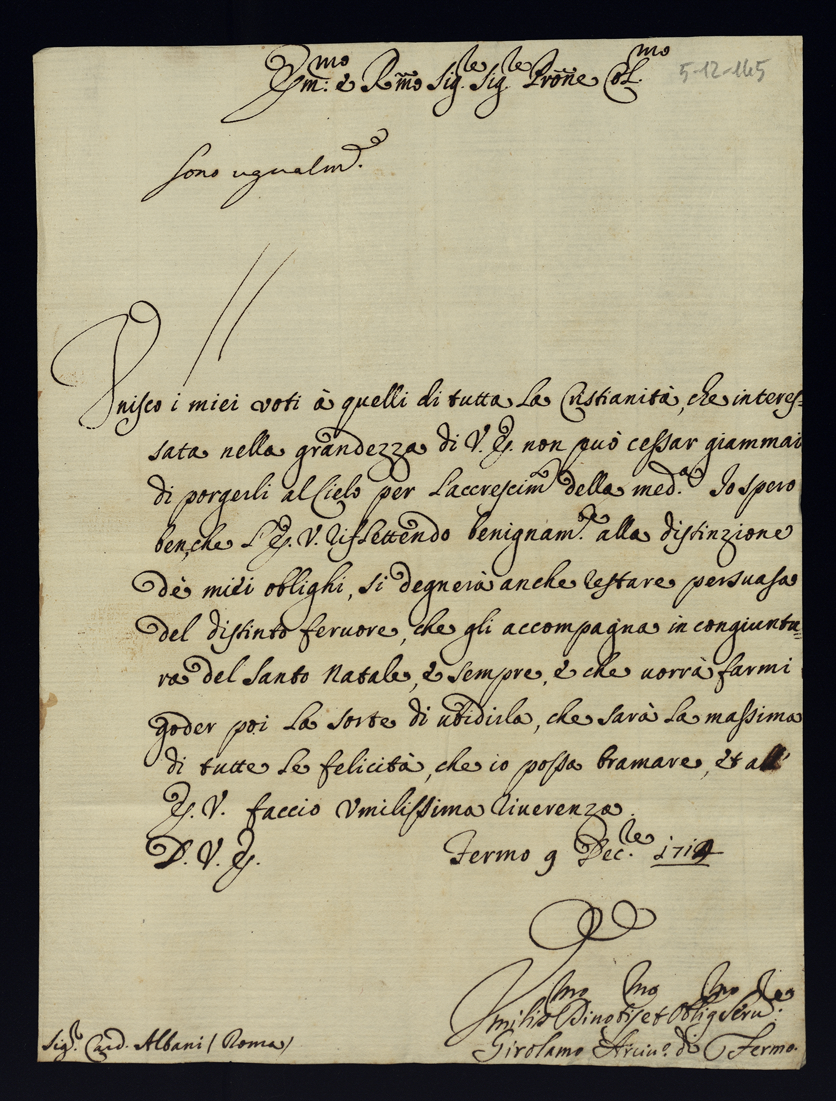 Em:mo e R.mo Sig.re Sig.re Prõne Col.mo
5-12-165
sono ugualm.e
Vnisco i miei voti à quelli di tutta la Cristianità, che interes=
sata nella grandezza di V. E. non può cessar giammai
di porgerli al Cielo per l'accrescim.o della med.a Io spero
ben, che l'E. V. riflettendo benignam.te alla distinzione
dè miei oblighi, si degnerà anche restare persuasa
del distinto feruore, che gli accompagna in congiuntu=
ra del Santo Natale, e sempre, e che uorrà farmi
goder poi la sorte di ubidirla, che sarà la massima
di tutte le felicità, che io possa bramare, et all'
E. V. faccio Vmilissima riuerenza.
D. V. E. Fermo 9 Dec.re 1714
Vmiliss.mo Diuotiss.mo et Oblig.mo Seru.re
Girolamo Arciu.o di Fermo.
Sig.r Card. Albani (Roma)